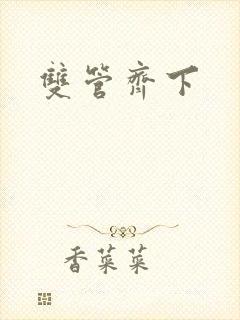 雙管齊下
香菜菜